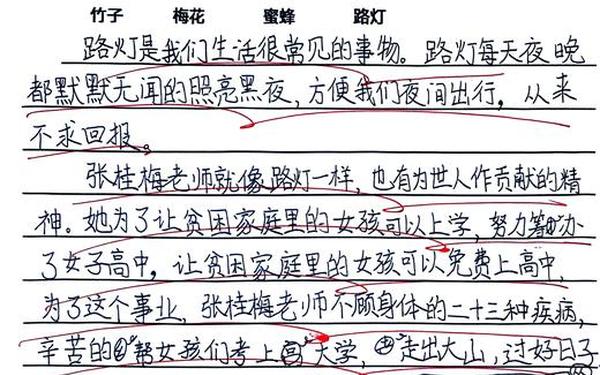 竹子 梅花 蜜蜂 路灯
路灯是我们生活很常见的事物。路灯每天夜晚
都默默无闻的照亮黑夜,方便我们夜间出行,从来
不求回报。
张桂梅老师就像路灯一样,也有为世人作贡献的精
神。她为了让贫困家庭里的女孩可以上学,努力筹办
了女子高中,让贫困家庭里的女孩可以免费上高中,
为了这个事业,张桂梅老师不顾身体的二十三种疾病,
辛苦的帮女孩们考上大学,走出大山,过好日子